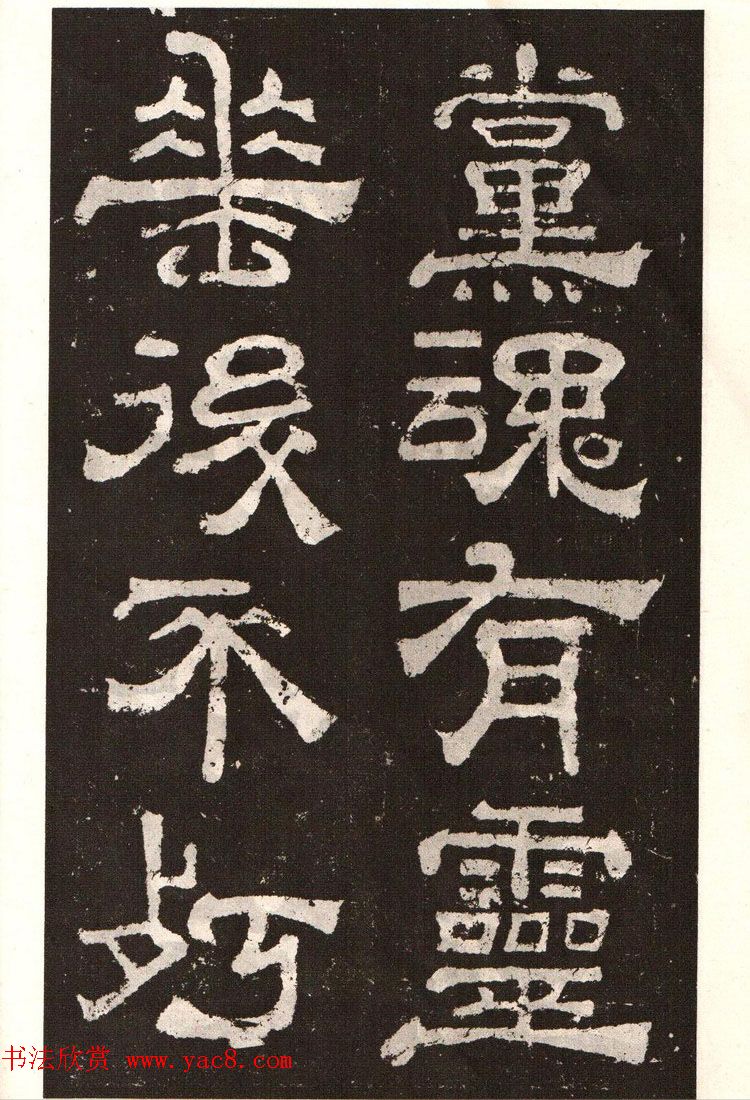 黨魂有靈
垂後不㱙
书法欣赏 www.yac8.com